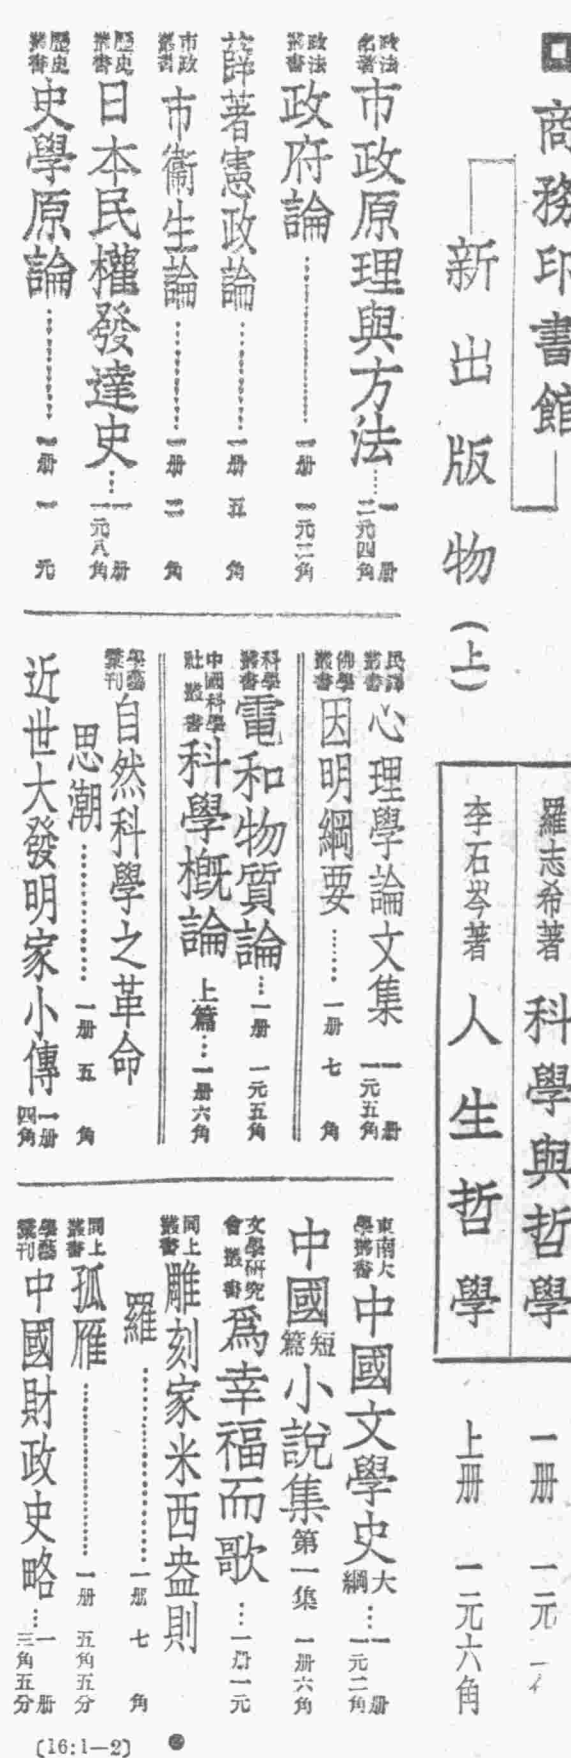 商務印書館
新出版物(上)
羅志希著 科學與哲學 一册 一元
李石岑著 人生哲學 上册 一元六角
政法名著 市政原理與方法 一册 二元四角
政法叢書 政府論 一册 一元二角
薛著憲政論 一册 五角
市政叢書 市衞生論 一册 二角
歷史叢書 日本民權發達史 一册 一元八角
歷史叢書 史學原論 一册 一元
民鐸叢書 心理學論文集 一册 一元五角
佛學叢書 因明綱要 一册 七角
科學叢書 電和物質論 一册 一元五角
中國科學社叢書 科學概論 上篇 一册 六角
學藝彙刊 自然科學之革命
思潮 一册 五角
近世大發明家小傳 一册 四角
東南大學叢書 中國文學史大綱 一册 一元二角
中國短篇小說集 第一集 一册 六角
文學研究會叢書 爲幸福而歌 一册 一元
同上叢書 雕刻家米西盎則
羅 一册 七角
同上叢書 孤雁 一册 五角五分
學藝彙刊 中國財政史略 一册 三角五分
(16:1—2)